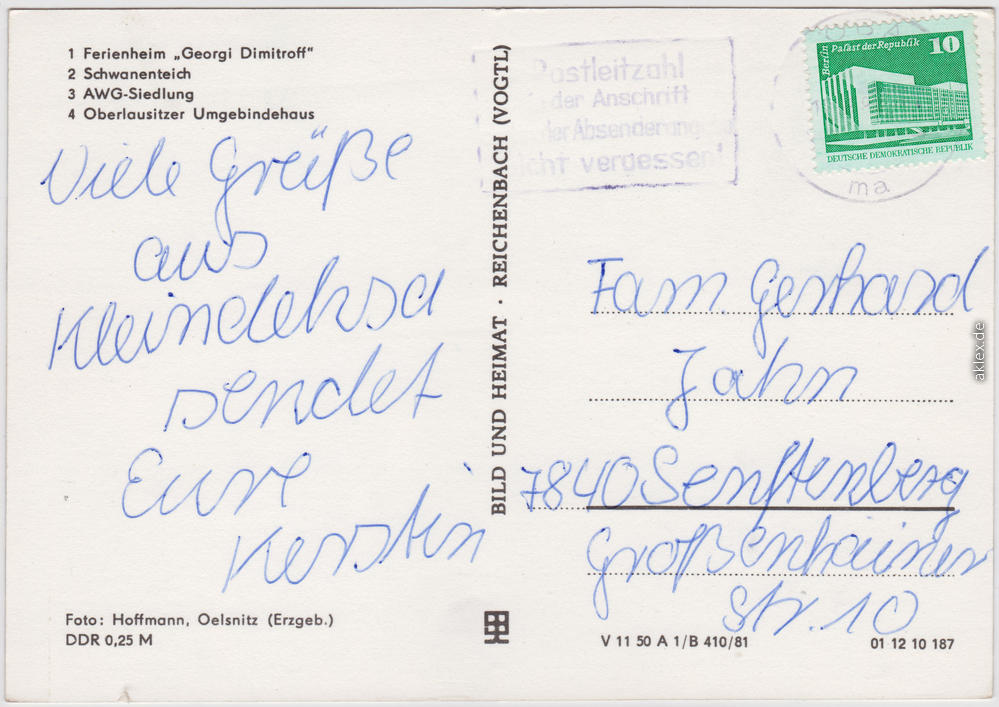 1 Ferienheim „Georgi Dimitroff"
2 Schwanenteich
3 AWG-Siedlung
4 Oberlausitzer Umgebindehaus
Viele Grüße
aus
Kleindehsa
sendet
Eure
Kerstin
Foto: Hoffmann, Oelsnitz (Erzgeb.)
DDR 0,25 M
BILD UND HEIMAT · REICHENBACH (VOGTL)
Postleitzahl
der Anschrift
der Absenderangabe
nicht vergessen!
Berlin
Palast der Republik
10
DEUTSCHE DEMOKRATISCHE REPUBLIK
ma
Fam. Gerhard
Jahn
7840 Senftenberg
Großenhainer
Str. 10
V 11 50 A 1/B 410/81
01 12 10 187
aklex.de